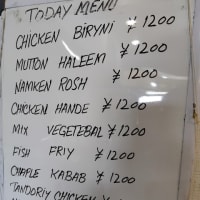 TODAY MENU
CHICKEN BIRYNI ¥ 1200
MUTTON HALEEM ¥ 1200
NAMKEN ROSH ¥ 1200
CHICKEN HANDE ¥ 1200
MIX VEGETEBAL ¥ 1200
FISH FRIY ¥ 1200
CHAPLE KABAB ¥ 1200
TANDORIY CHICKEN